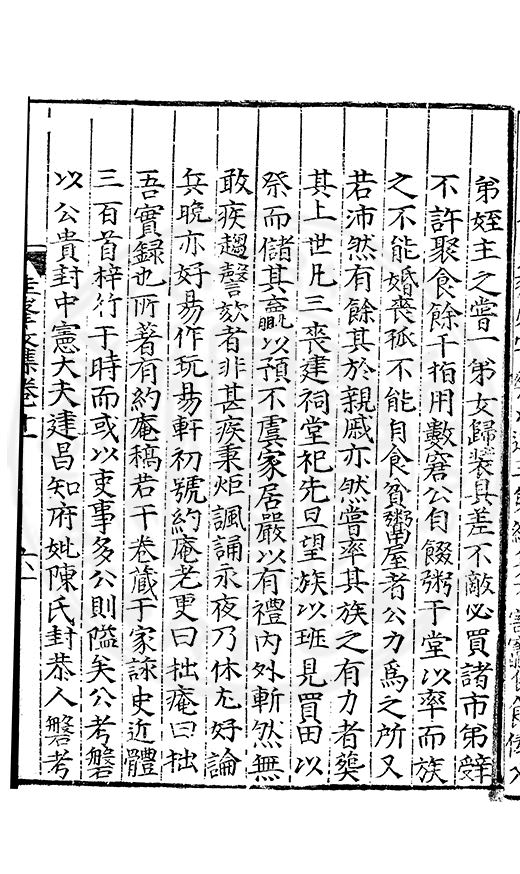 弟姪主之嘗一弟女歸裝具差不敵必買諸市弟辤
不許聚食餘千指用數窘公自餟粥于堂以率而族
之不能婚喪孤不能自食貧鬻屋者公力爲之所又
若沛然有餘其於親戚亦然嘗率其族之有力者塟
其上世凡三喪建祠堂祀先旦望族以班見買田以
祭而儲其贏以預不虞家居嚴以有禮內外斬然無
敢疾趨謦欬者非甚疾秉炬諷誦永夜乃休尤好論
兵晚亦好易作玩易軒初號約庵老更曰拙庵曰拙
吾實録也所著有約庵稿若干卷藏于家詠史近體
三百首梓行于時而或以吏事多公則隘矣公考磐
以公貴封中憲大夫建昌知府妣陳氏封恭人磐考